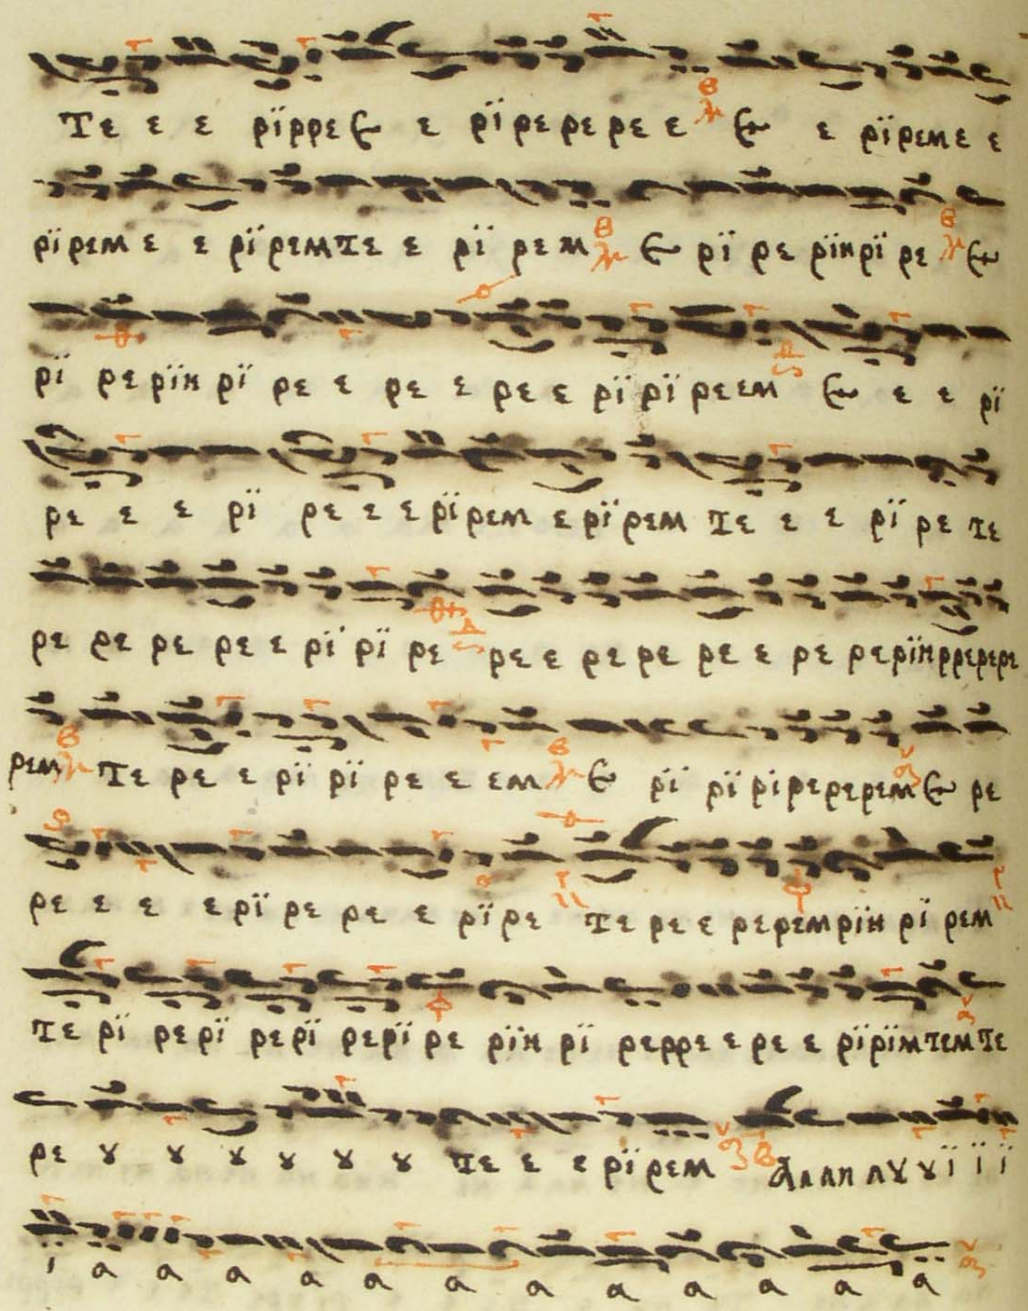 Τε ε ε ρϊρρε ε ε ρϊρερερε ε ε ε ρϊρεμε ε
ρϊρεμ ε ε ρϊρεμτε ε ρϊ ρεμ ε ρϊ ρε ρϊηρϊ ρε ε
ρϊ ρερϊη ρϊ ρε ε ρε ε ρε ε ρϊ ρϊ ρεεμ ε ε ε ρϊ
ρε ε ε ρϊ ρε ε ε ρϊρεμ ε ρϊρεμ τε ε ε ρϊ ρε τε
ρε ρε ρε ρε ε ρϊ ρϊ ρε ρε ε ρερε ρε ε ρε ρερϊηρρερερε
ρεμ Τε ρε ε ρϊ ρϊ ρε ε εμ ε ρϊ ρϊρϊρερερεμ ε ρε
ρε ε ε ερϊ ρε ρε ε ρϊρε Τε ρε ε ρερεμρϊη ρϊ ρεμ
τε ρϊ ρερϊ ρερϊ ρερϊρε ρϊη ρϊ ρερρε ερε ε ρϊρϊμτεμτε
ρε ȣ ȣ ȣ ȣ ȣ ȣ τε ε ε ρϊρεμ αλλη λȣȣϊ ϊ ϊ
ϊ α α α α α α α α α α α α